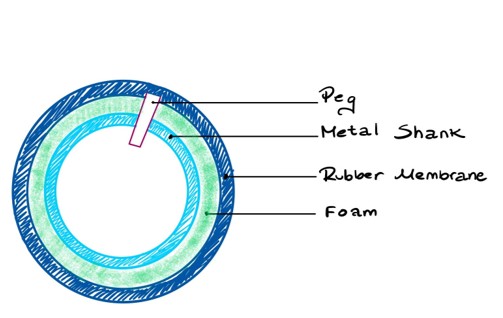 Peg
Metal Shank
Rubber Membrane
Foam